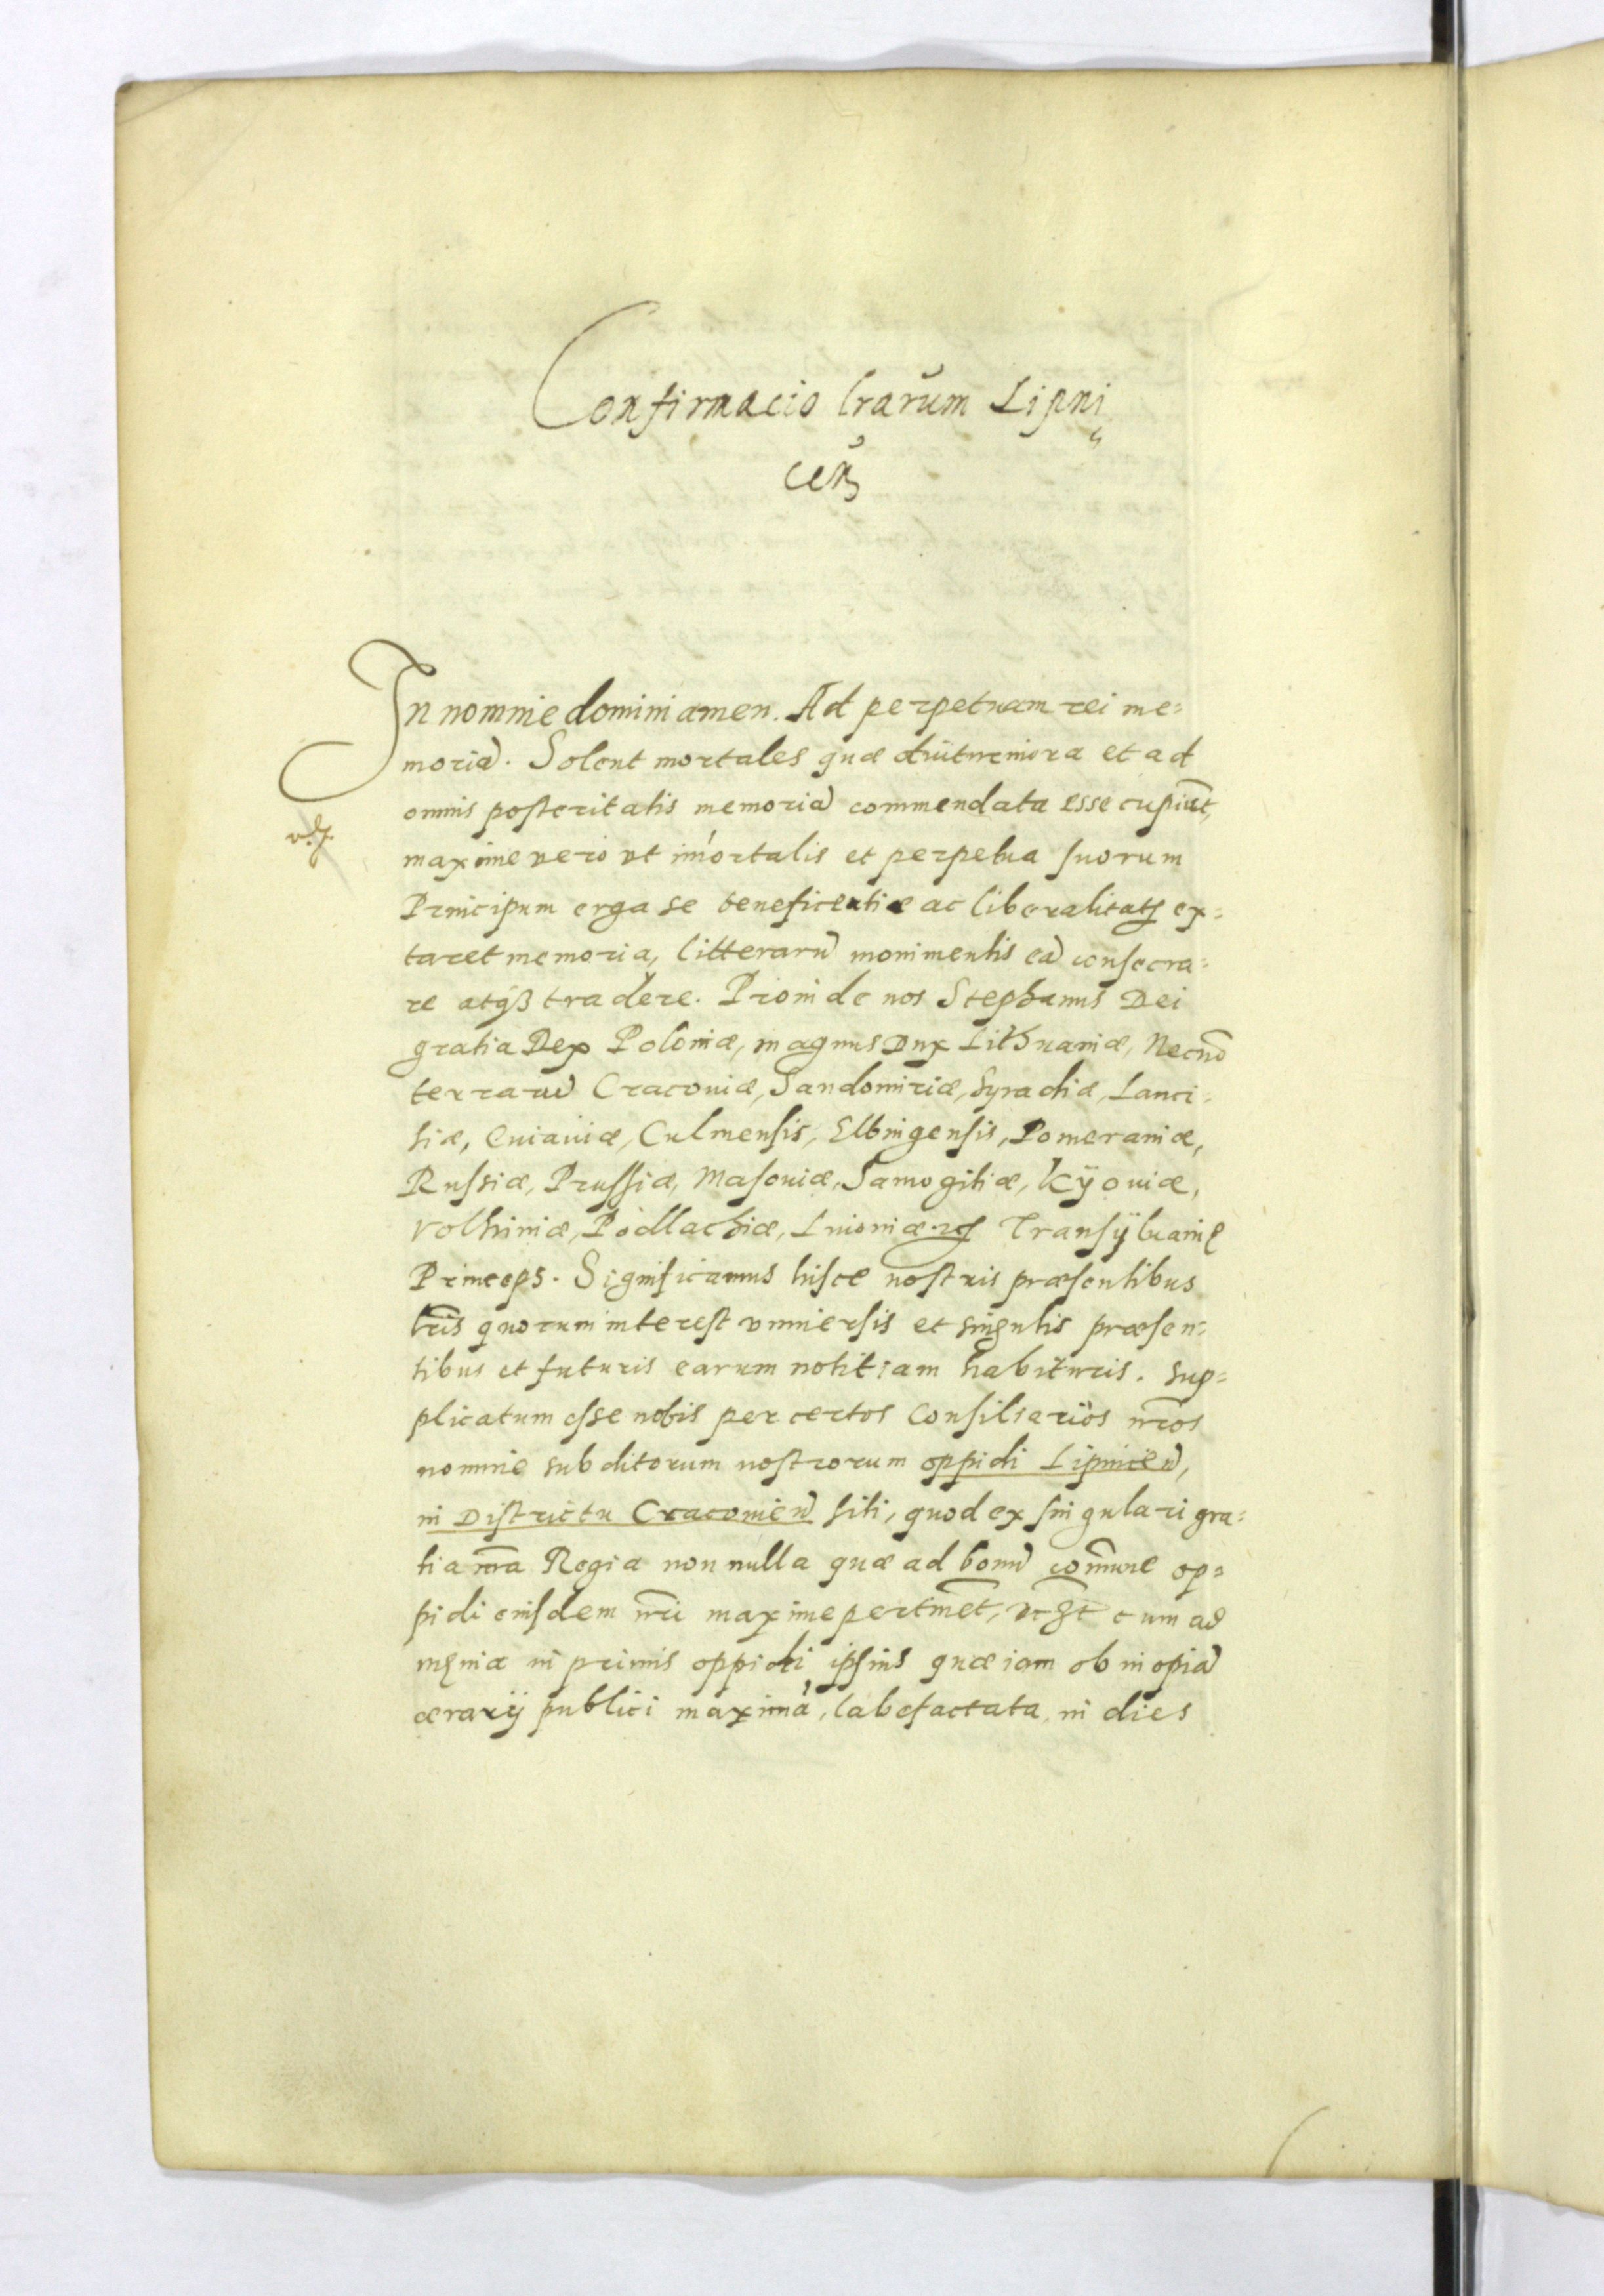 Confirmacio lrarum Lipni
ceñ
In nomine domini amen. Ad perpetuam rei me=
moriã. Solent mortales quæ diuturniora et ad
omnis posteritatis memoriã commendata esse cupiũt,
maxime vero vt im̃ortalis et perpetua suorum
Principum erga se beneficentiæ ac liberalitatis ex=
taret memoria, litterarũ monimentis eã consecra=
re atq₃ tradere. Proinde nos Stephanus Dei
gratia Rex Poloniæ, magnus Dux Lithuaniæ, Necnõ
terrarũ Cracouiæ, Sandomiriæ, Syradiæ, Lanci=
siæ, Cuiauiæ, Culmensis, Elbingensis, Pomeraniæ,
Russiæ, Prussiæ, Masouiæ, Samogitiæ, Kÿouiæ,
Volhiniæ, Podlachiæ, Liuoniæ Transÿluanię
Princeps. Significamus hisce nostris præsentibus
lr̃is quorum interest vniuersis et singulis præsen=
tibus et futuris earum notitiam habituris. Sup=
plicatum esse nobis per certos Consiliarios nr̃os
nomine subditorum nostrorum oppidi Lipniceñ,
in Districtu Cracouieñ siti, quod ex singulari gra=
tia nr̃a Regia non nulla quæ ad bonũ com̃une op=
pidi eiusdem nr̃i maxime pertinẽt, cum ad
męnia in primis oppidi ipsius quæ iam ob inopiã
ærarÿ publici maximã, labefactata in dies